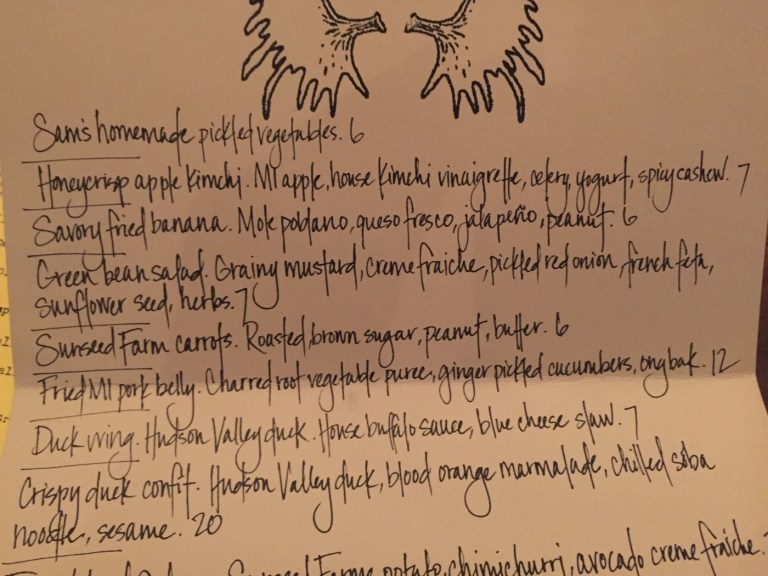 Sam's homemade pickled vegetables. 6
Honeycrisp apple kimchi. MI apple, house kimchi vinaigrette, celery, yogurt, spicy cashew. 7
Savory fried banana. Mole poblano, queso fresco, jalapeño, peanut. 6
Green bean salad. Grainy mustard, creme fraiche, pickled red onion, french feta,
sunflower seed, herbs. 7
Sunseed Farm carrots. Roasted, brown sugar, peanut, butter. 6
Fried MI pork belly. Charred root vegetable puree, ginger pickled cucumbers, ong bak. 12
Duck wing. Hudson Valley duck. House buffalo sauce, blue cheese slaw. 7
Crispy duck confit. Hudson Valley duck, blood orange marmalade, chilled soba
noodle, sesame. 20
potato, chimichurri, avocado creme fraiche.